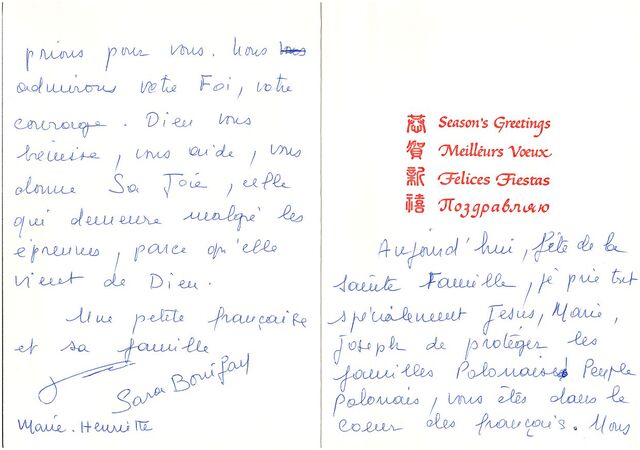 恭賀新禧
Season's Greetings
Meilleurs Vœux
Felices Fiestas
Поздравляю
Aujourd'hui, fête de la
sainte Famille, je prie tout
spécialement Jesus, Marie,
Joseph de protéger les
familles Polonaises Peuple
Polonais, vous êtes dans le
coeur des français. Nous
prions pour vous. Nous
admirons votre Foi, votre
courage. Dieu vous
bénisse, vous aide, vous
donne Sa Joie, celle
qui demeure malgré les
épreuves, parce qu'elle
vient de Dieu.
Une petite française
et sa famille
Sara
Marie-Henriette